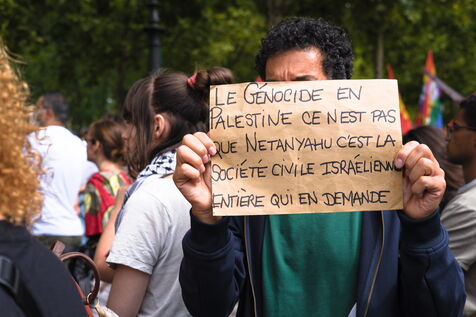 LE GÉNOCIDE EN
PALESTINE CE NEST PAS
QUE NETANYAHU C'EST LA
SOCIÉTÉ CIVILE ISRAÉLIENNE
ENTIÈRE QUI EN DEMANDE